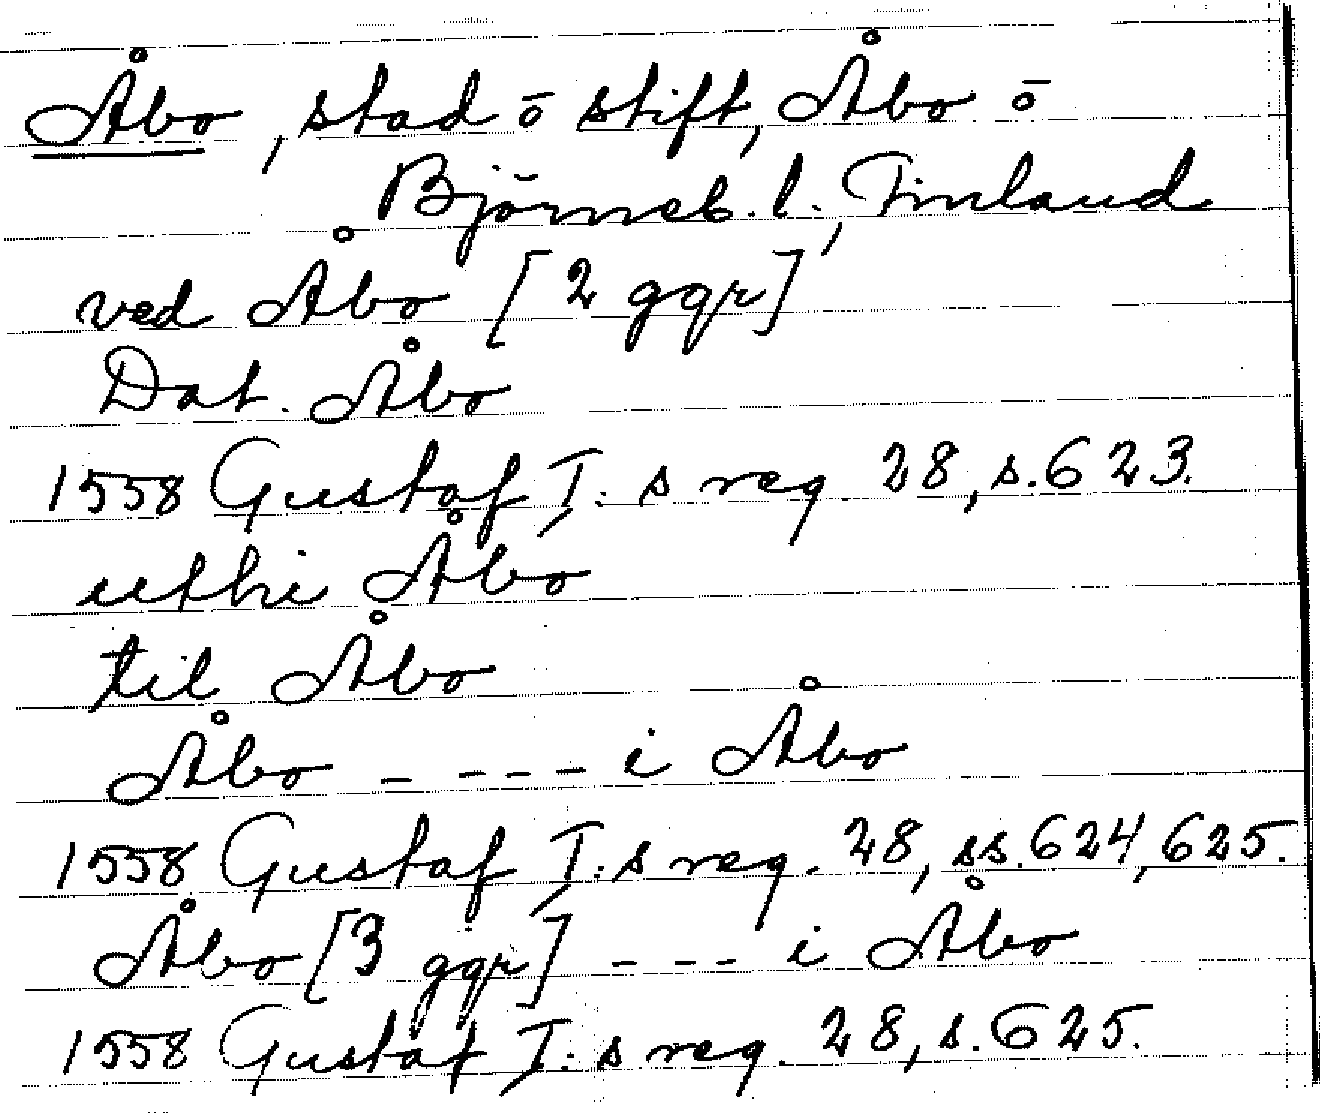 Åbo, stad ō stift, Åbo ō
Björneb. l., Finland
ved Åbo [2 ggr]
Dat. Åbo
1558 Gustaf I:s reg. 28, s. 623.
uthi Åbo
til Åbo
Åbo - - - - i Åbo
1558 Gustaf I:s reg. 28, ss. 624, 625.
Åbo [3 ggr] - - - i Åbo
1558 Gustaf I:s reg. 28, s. 625.